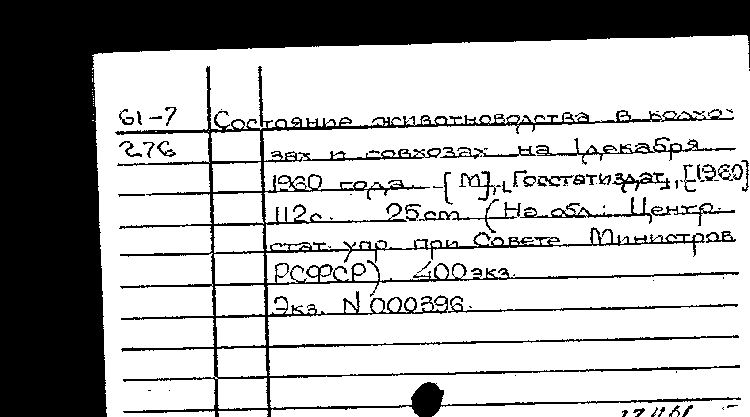 61-7 Состояние животноводства в колхо-
276 зах и совхозах на 1 декабря
1960 года. [М], Госстатиздат, [1960]
112 с. 25 cm (На обл.: Центр.
стат. упр. при Совете Министров
РСФСР). 400 экз.
Экз. N 000396.